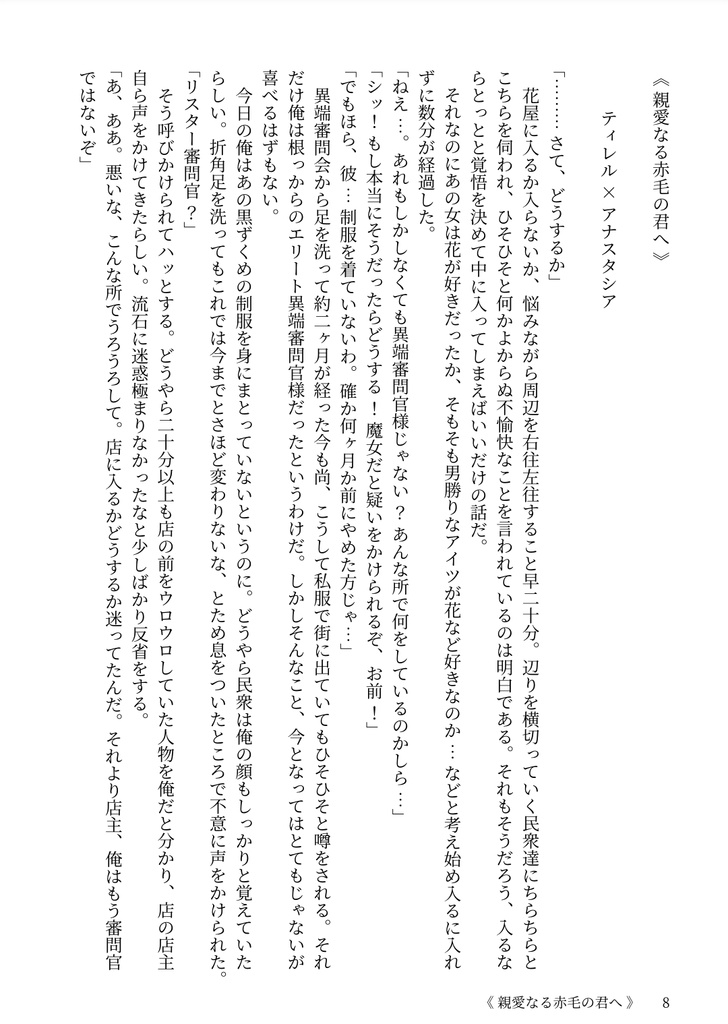 《 親愛なる赤毛の君へ 》
ティレル × アナスタシア
「……… さて、どうするか」
花屋に入るか入らないか、悩みながら周辺を右往左往すること早二十分。辺りを横切っていく民衆達にちらちらと
こちらを伺われ、ひそひそと何かよからぬ不愉快なことを言われているのは明白である。それもそうだろう、入るな
らとっとと覚悟を決めて中に入ってしまえばいいだけの話だ。
それなのにあの女は花が好きだったか、そもそも男勝りなアイツが花など好きなのか… などと考え始め入るに入れ
ずに数分が経過した。
「ねえ…。あれもしかしなくても異端審問官様じゃない？あんな所で何をしているのかしら…」
「シッ！もし本当にそうだったらどうする！魔女だと疑いをかけられるぞ、お前！」
「でもほら、彼… 制服を着ていないわ。確か何ヶ月か前にやめた方じゃ…」
異端審問会から足を洗って約二ヶ月が経った今も尚、こうして私服で街に出ていてもひそひそと噂をされる。それ
だけ俺は根っからのエリート異端審問官様だったというわけだ。しかしそんなこと、今となってはとてもじゃないが
喜べるはずもない。
今日の俺はあの黒ずくめの制服を身にまとっていないというのに。どうやら民衆は俺の顔もしっかりと覚えていた
らしい。折角足を洗ってもこれでは今までとさほど変わりないな、とため息をついたところで不意に声をかけられた。
「リスター審問官？」
そう呼びかけられてハッとする。どうやら二十分以上も店の前をウロウロしていた人物を俺だと分かり、店の店主
自ら声をかけてきたらしい。流石に迷惑極まりなかったなと少しばかり反省をする。
「あ、ああ。悪いな、こんな所でうろうろして。店に入るかどうするか迷ってたんだ。それより店主、俺はもう審問官
ではないぞ」
《 親愛なる赤毛の君へ 》 8